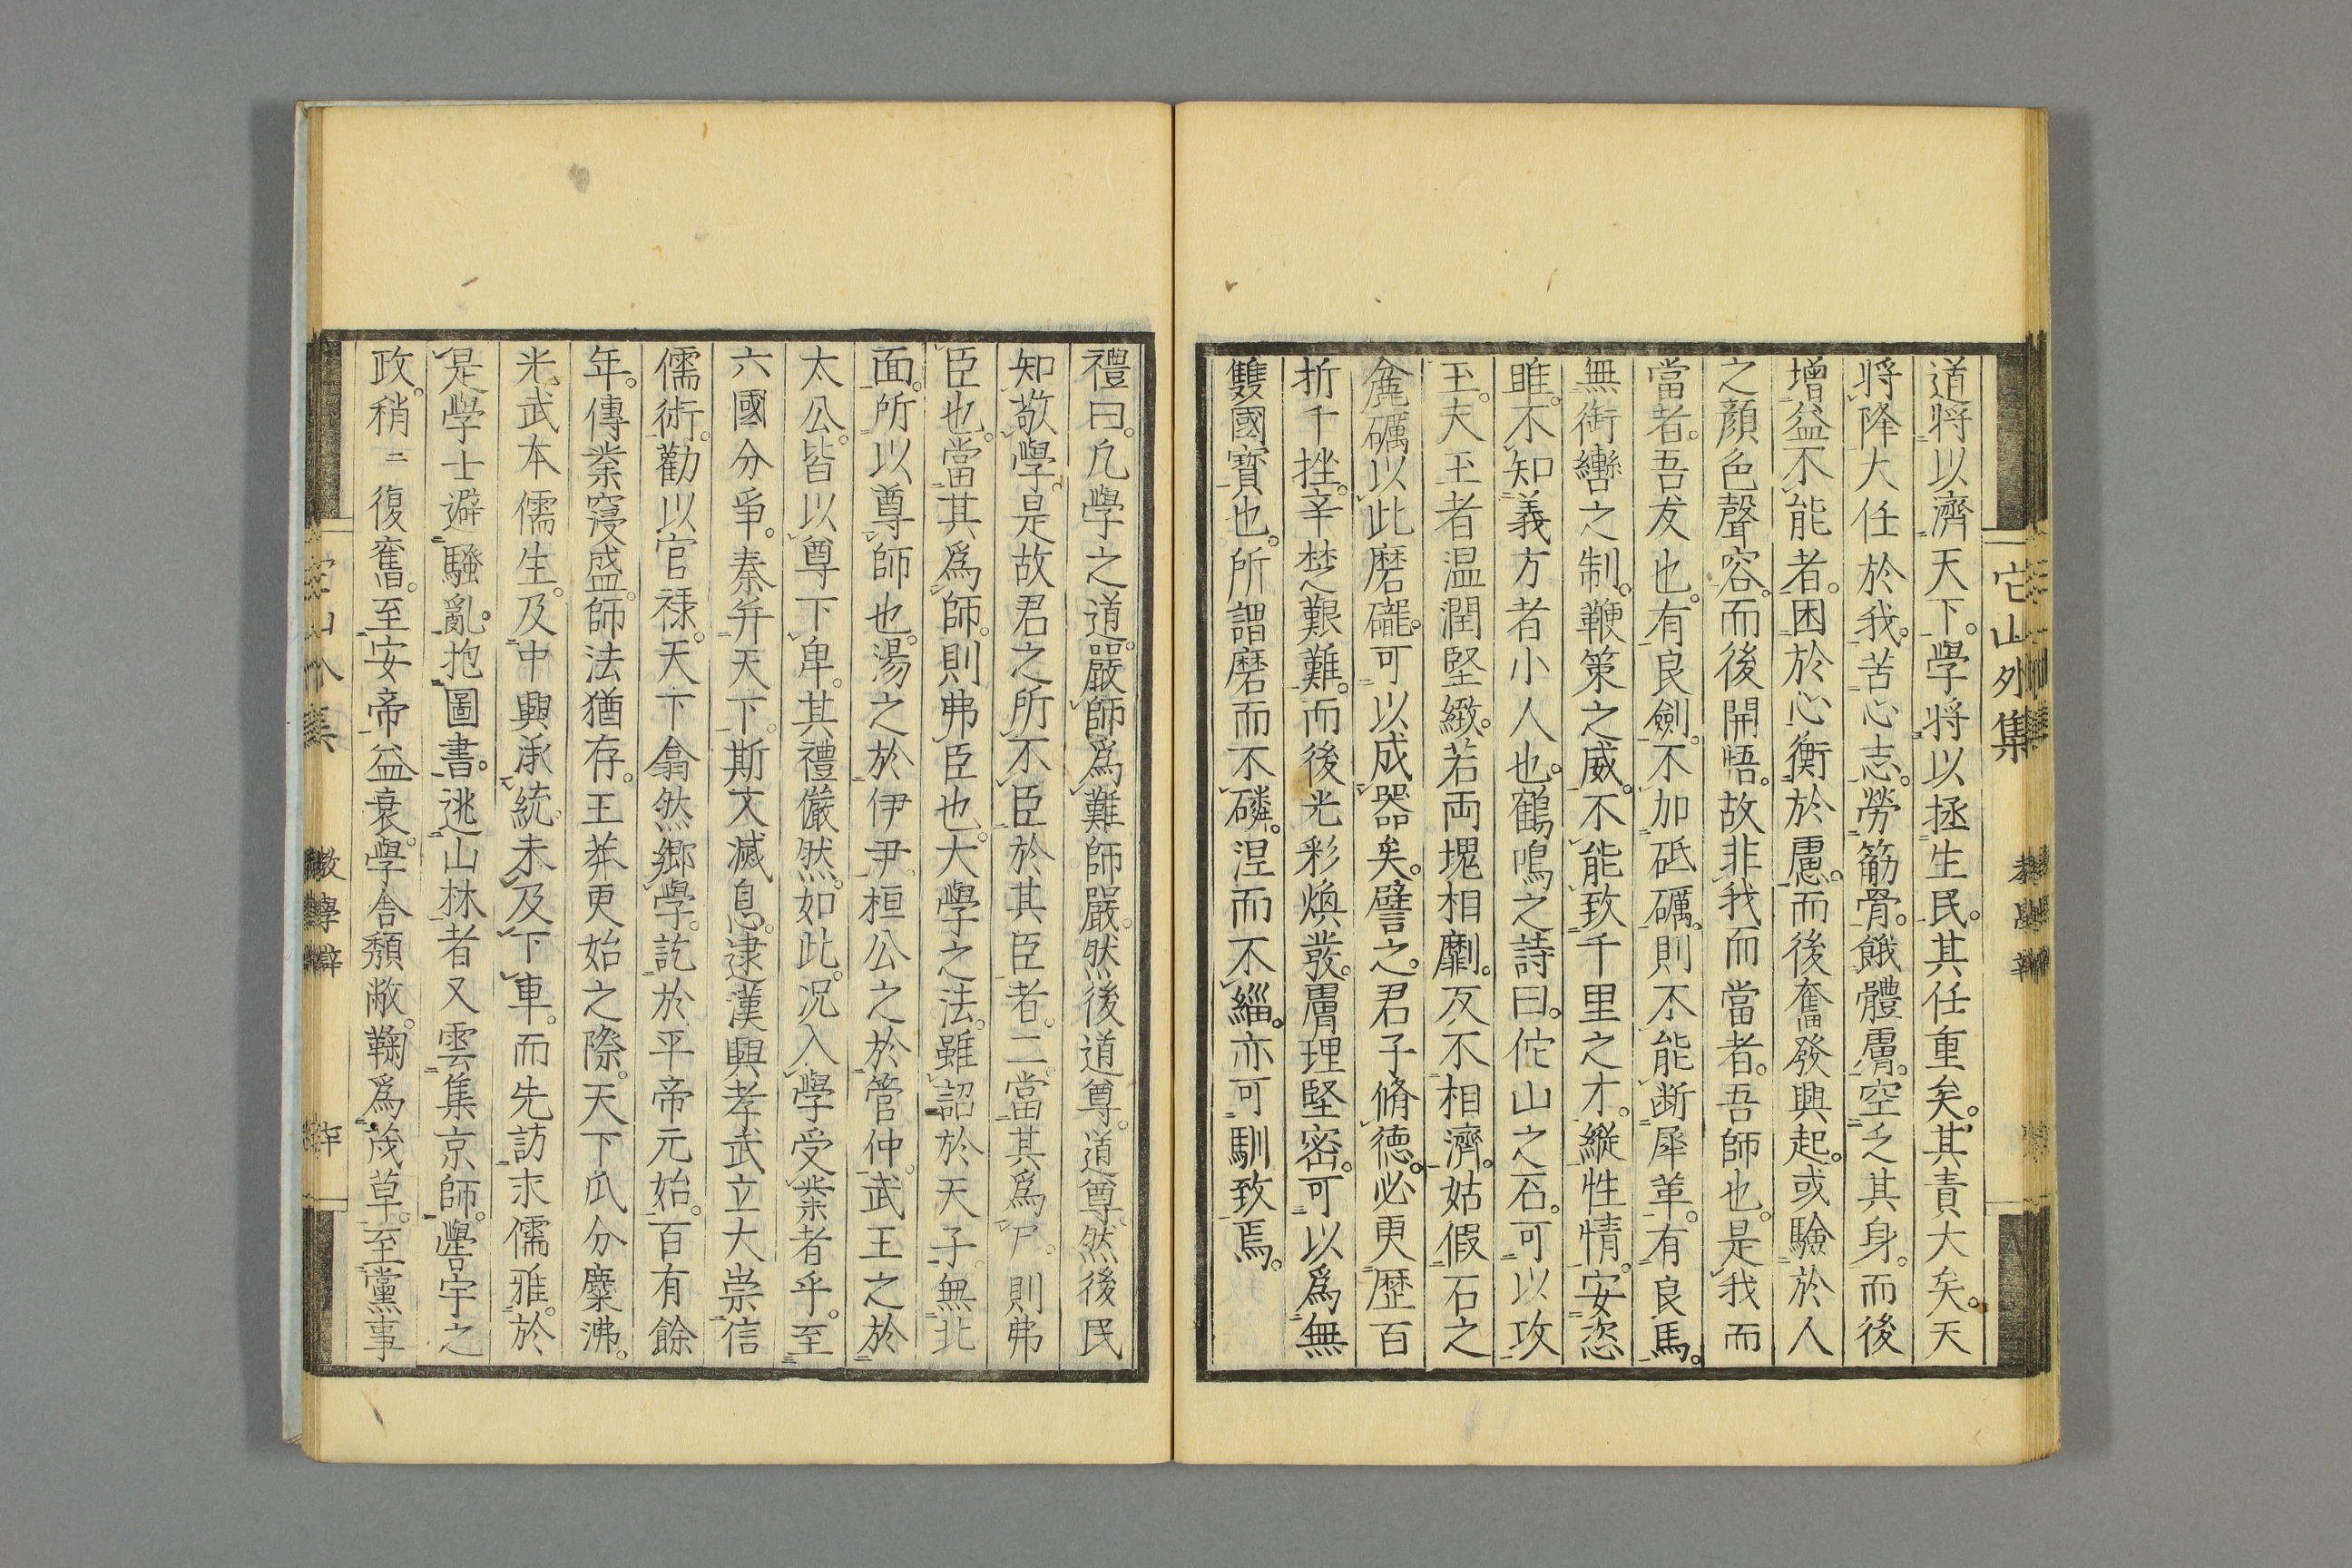 它山外集
道将以濟天下。學将以拯生民。其任重矣。其責大矣。天
将降大任於我。苦心志。勞筋骨。餓體膚。空乏其身。而後
增益不能者。困於心衡於慮。而後奮發興起。或驗於人
之顔色聲容。而後開悟。故非我而當者。吾師也。是我而
當者。吾友也。有良劍。不加砥礪。則不能断犀革。有良馬。
無銜轡之制。鞭策之威。不能致千里之才。縱性情。安恣
睢。不知義方者小人也。鶴鳴之詩曰。佗山之石。可以攻
玉。夫玉者温潤堅緻。若両塊相劘。反不相濟。姑假石之
麁礪以此磨礲。可以成器矣。譬之。君子脩德。必更歴百
折千挫。辛楚艱難。而後光彩煥發。膚理堅密。可以爲無
雙國寳也。所謂磨而不磷。涅而不緇。亦可馴致焉。
禮曰。凡學之道。嚴師爲難師嚴。然後道尊。道尊然後民
知敬學。是故君之所不臣於其臣者。二。當其爲尸。則弗
臣也。當其爲師。則弗臣也。大學之法。雖詔於天子。無北
面。所以尊師也。湯之於伊尹。桓公之於管仲。武王之於
太公。皆以尊下卑。其禮儼然。如此。况入學受業者乎。至
六國分爭。秦并天下。斯文滅息。逮漢興孝武立大崇信
儒術。勸以官禄。天下翕然郷學。訖於平帝元始。百有餘
年。傳業寖盛。師法猶存。王莽更始之際。天下瓜分麋沸。
光武本儒生。及中興承統。未及下車。而先訪求儒雅。於
是學士避騷亂。抱圖書。逃山林者又雲集京師。黌宇之
政。稍ニ復舊。至安帝益衰。學舎頽敝。鞠爲茂草。至黨事